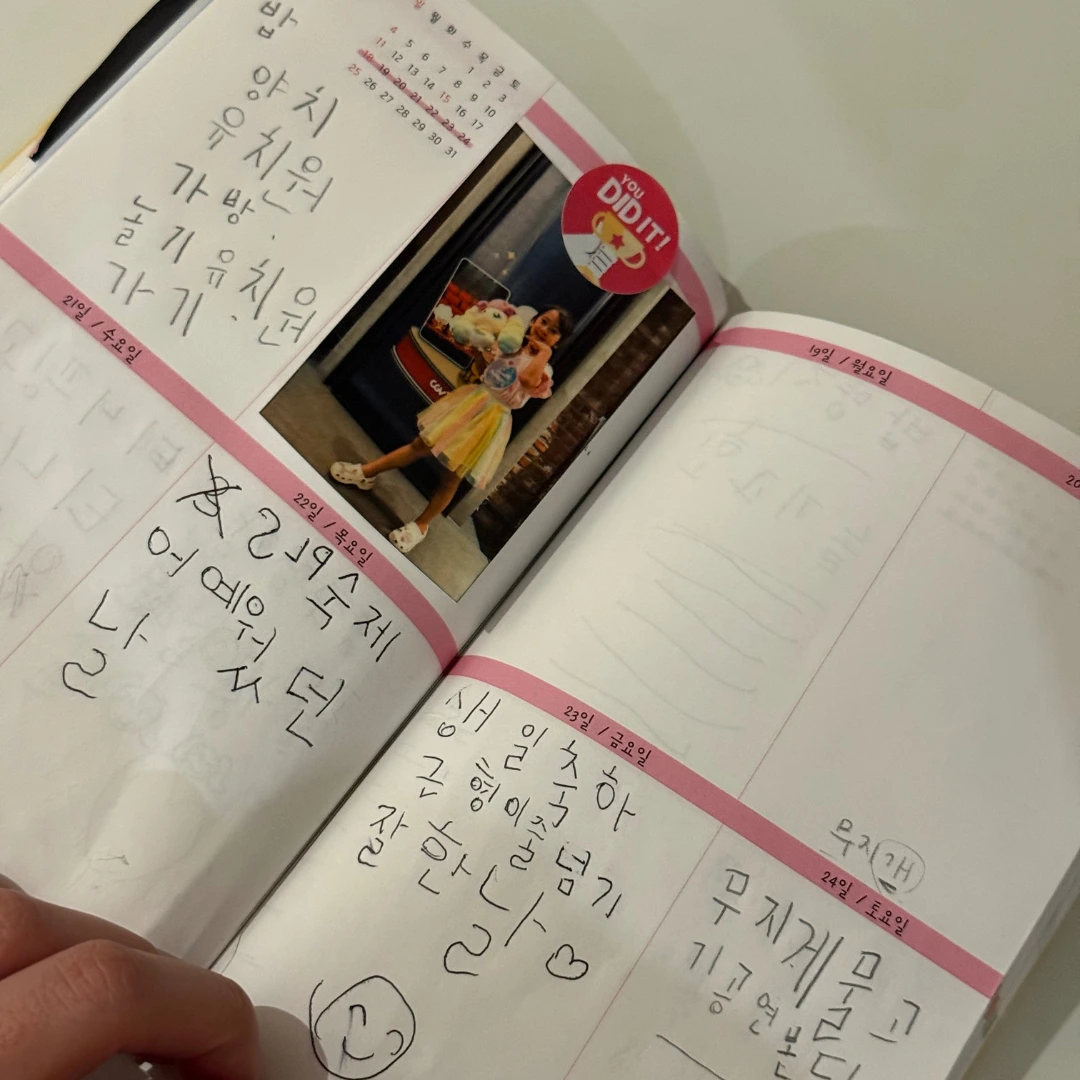 밥
양치
유치원
가방
놀기 유치원
가기
일 월 화 수 목 금 토
1 2 3
4 5 6 7 8 9 10
11 12 13 14 15 16 17
18 19 20 21 22 23 24
25 26 27 28 29 30 31
YOU
DID IT!
21일 / 수요일
22일 / 목요일
숙제
어예웠던
날
19일 / 월요일
20
23일 / 금요일
생일축하
구형이줄넘기
잘한 날
무지개
24일 / 토요일
무지게물고
기공연본